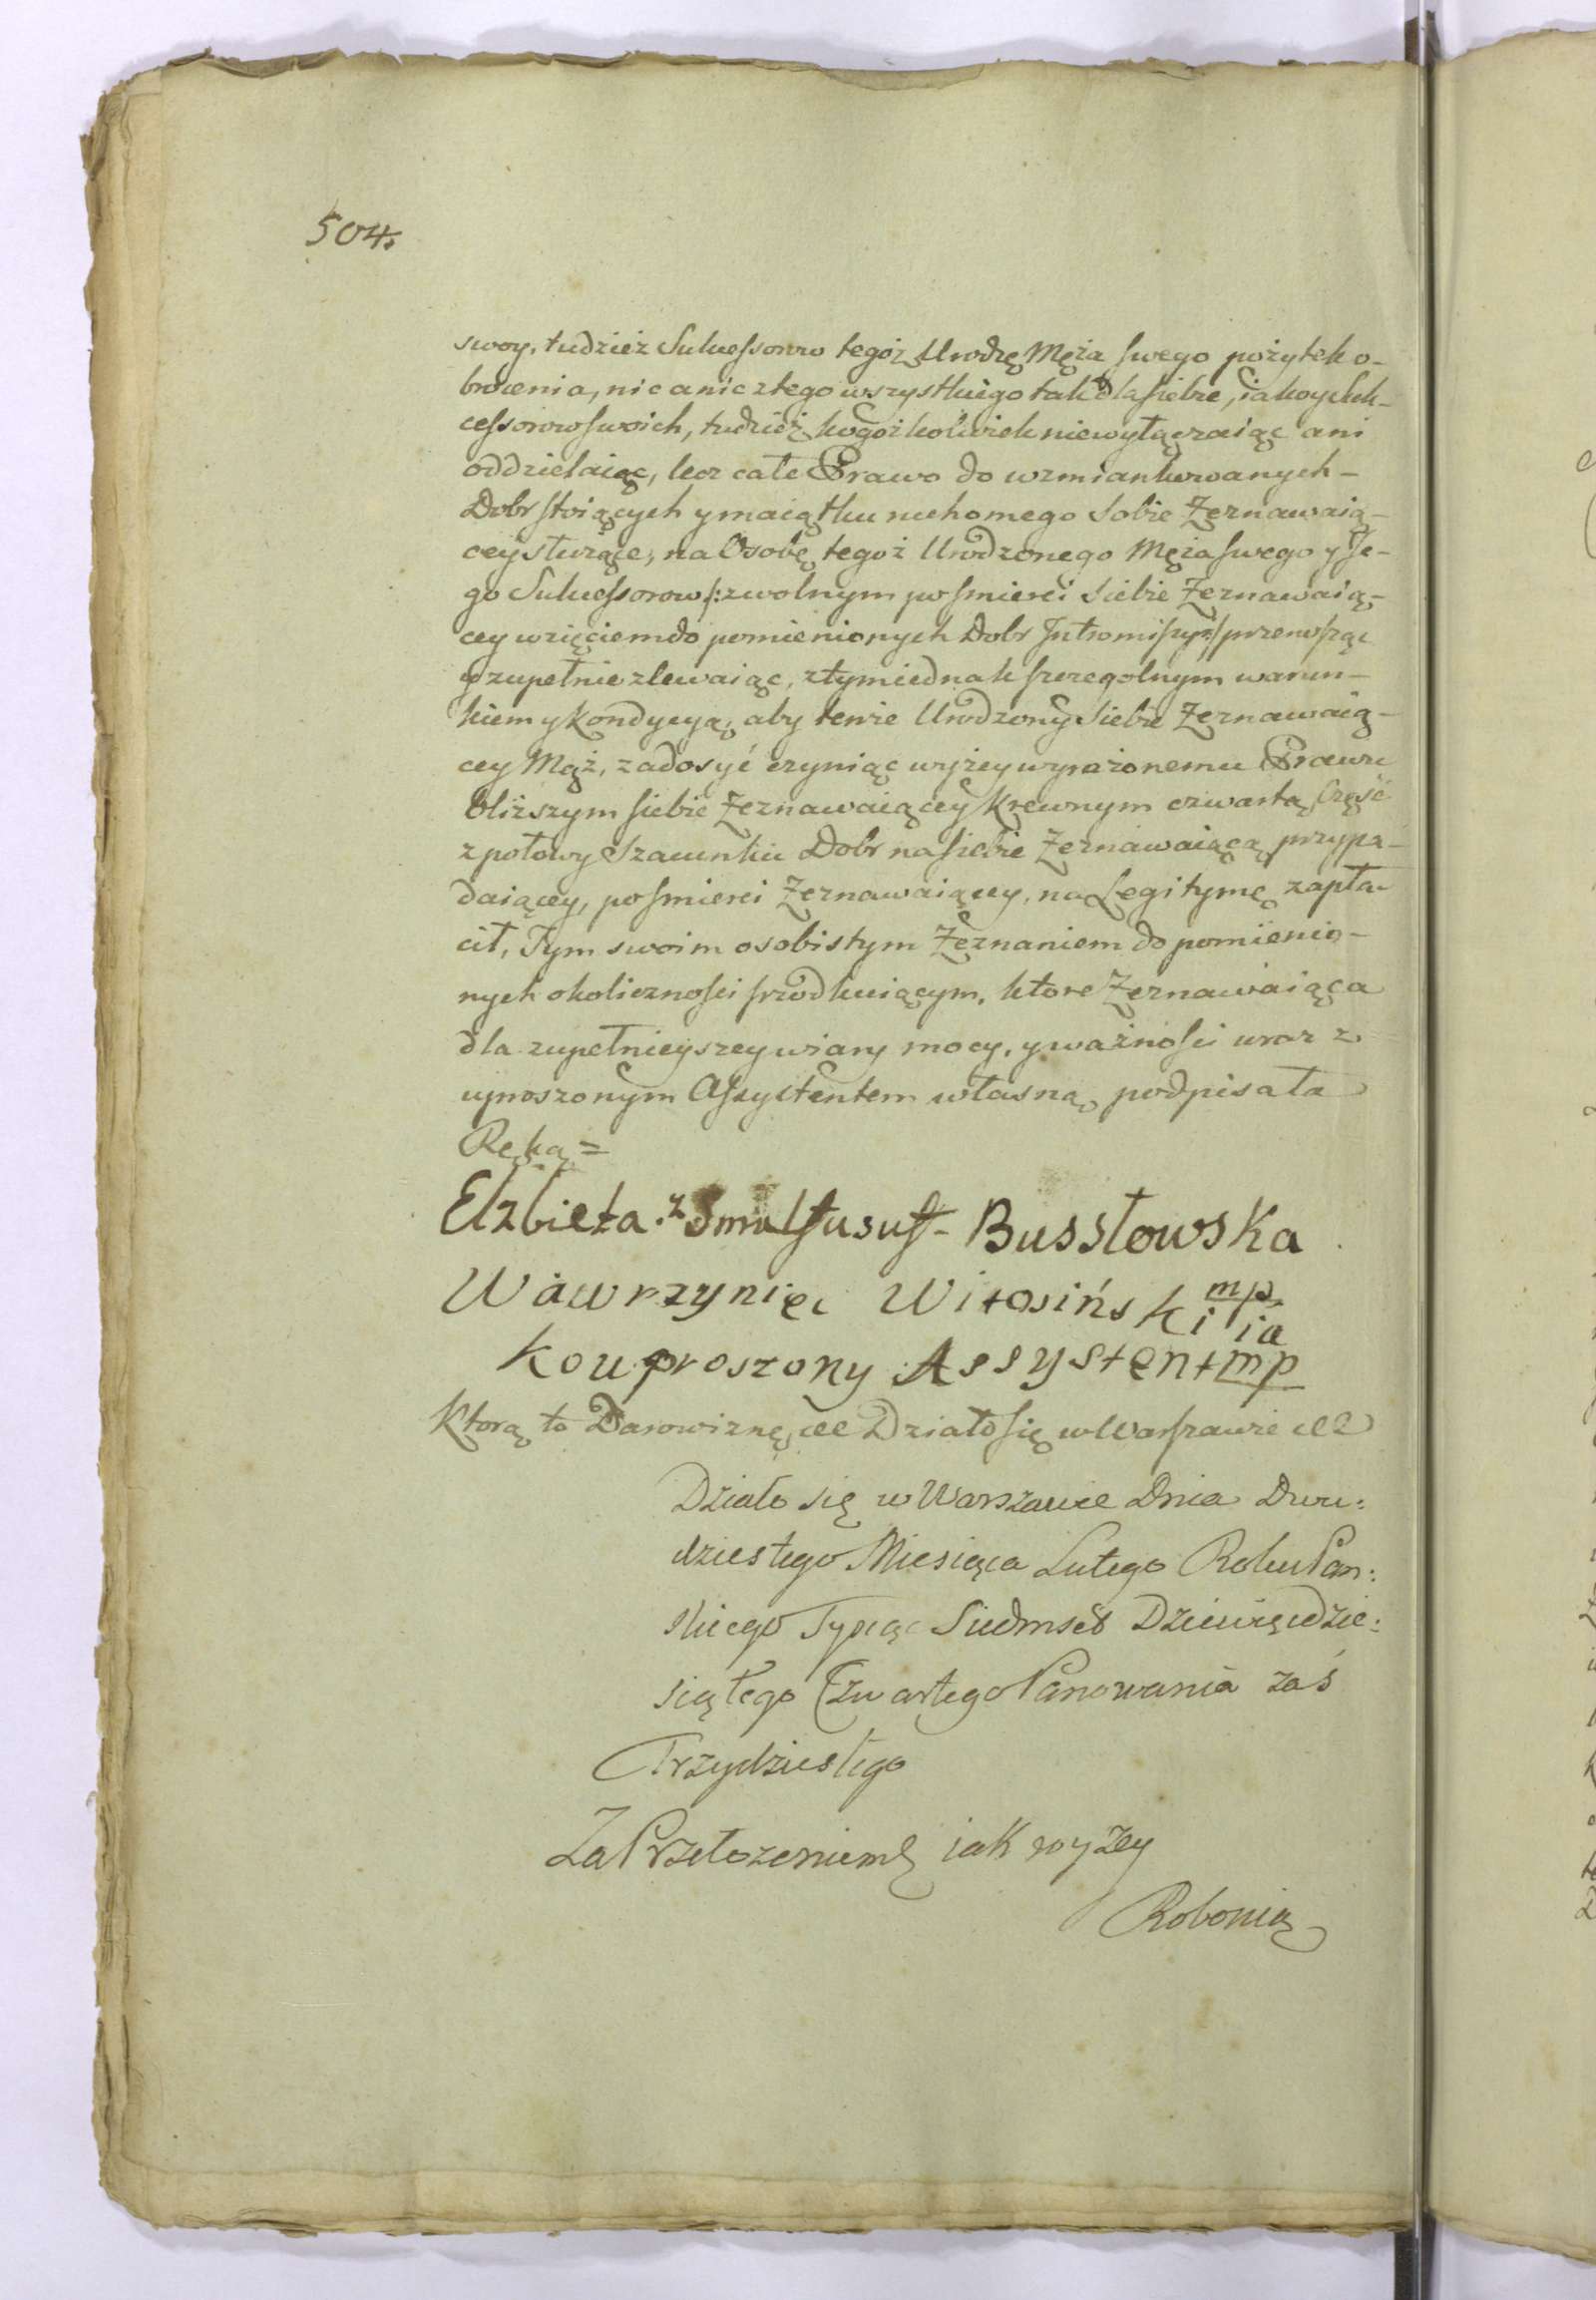 504.
swoy, tudzież Sukcessorow tegoż Urodzo Męża swego pożytek o-
brocenia, nic a nic z tego wszystkiego tak dla siebie, iako y Suk-
cessorow swoich, tudzież kogoż kolwiek niewyłączaiąc ani
oddzielaiąc, lecz całe Prawo do wzmiankowanych-
Dobr stoiących y maiątku ruchomego Sobie Zeznawaią-
cey służące, na Osobę tegoż Urodzonego Męża swego y Je-
go Sukcessorow /: z wolnym po smierci Siebie Zeznawaią-
cey wzięciem do pomienionych Dobr Intromissyi :/ przenosząc
y zupełnie zlewaiąc, z tym iednak szczegolnym warun-
kiem y kondycyą, aby tenże Urodzony Siebie Zeznawaią-
cey Mąż, zadosyć czyniąc wyżey wyrażonemu Prawu
bliższym siebie Zeznawaiącey Krewnym czwartą Część
z połowy Szacunku Dobr na siebie Zeznawaiącą przypa-
daiącey, po smierci Zeznawaiącey, na Legitymę zapła-
cił, Tym swoim osobistym Zeznaniem do pomienio-
nych okolicznosci srzodkuiącym, ktore Zeznawaiąca
dla zupełnieyszey wiary mocy, y ważnosci wraz z
uproszonym Assystentem własną podpisała
Ręką =
Elzbieta z Bussłowska
Wawrzyniec Witosiński mp ia
ko uproszony Assystent mp
Ktorą to Darowiznę etc Działo się w Warszawie etc
Działo się w Warszawie Dnia Dwu:
dziestego Miesiąca Lutego Roku Pań:
skiego Tysiąc Siedmset Dziewięćdzie:
siątego Czwartego Panowania zaś
Trzydziestego
Za Przełozeniem iak wyzey